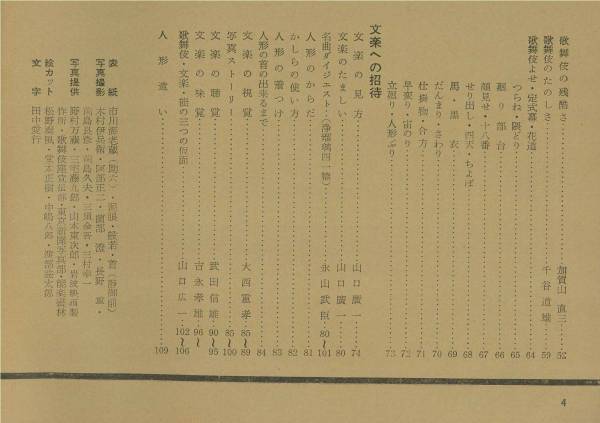 歌舞伎の残酷さ……加賀山直三…52
歌舞伎のたのしさ……千谷道雄…59
歌舞伎よせ・定式幕・花道……64
つらね・隈どり……65
廻り舞台……66
顔見せ・十八番……67
せり出し・四天・ちょぼ……68
馬・黒衣……69
だんまり・さわり……70
仕掛物・合方……71
早変り・宙のり……72
立廻り・人形ぶり……73
文楽への招待
文楽の見方……山口廣一…74
文楽のたましい……山口廣一…80
名曲ダイジエスト(浄瑠璃四一篇)……永山武臣…80〜101
人形のからだ……81
かしらの使い方……82
人形の着つけ……83
人形の首の出来るまで……84
写真ストーリー……85〜100
文楽の視覚……大西重孝…85〜89
文楽の聴覚……武田信雄…90〜95
文楽の味覚……吉永孝雄…96〜
歌舞伎・文楽・能の三つの仮面……山口広一…102〜106
人形遣い……109
表紙 市川海老蔵(助六)
写真撮影 木村伊兵衛・阿部正二・薗部澄・長野重一
前島良彦・前島久夫・三須金吾・三村幸一
写真提供 野村万蔵・三宅藤九郎・山本東次郎・岩波映画製
作所・歌舞伎座宣伝部・東京新聞写真部・能楽書林
絵カット 松野奏風・堂本正樹・中嶋八郎・渡部雄太郎
文字 田中愛行
4